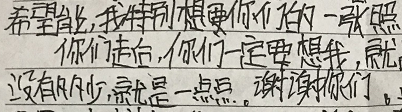 希望能，我特别想要你们的一张照
你们走后，你们一定要想我，就
没有多少，就是一点点。谢谢你们。